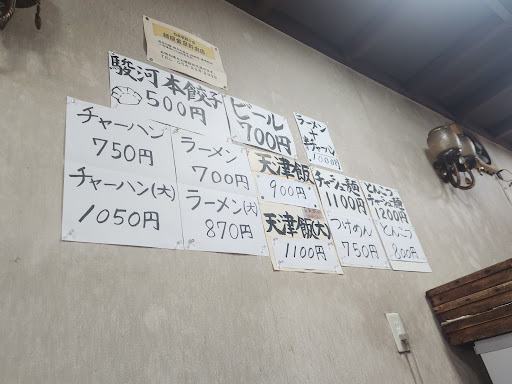 駿河本餃子
500円
ビール
700円
ラーメン
+
半チャーハン
1000円
チャーハン
750円
ラーメン
700円
天津飯
900円
チャーシュー麺
1100円
とんこつ
チャーシュー麺
1200円
チャーハン(大)
1050円
ラーメン(大)
870円
天津飯(大)
1100円
つけめん
750円
とんこつ
800円